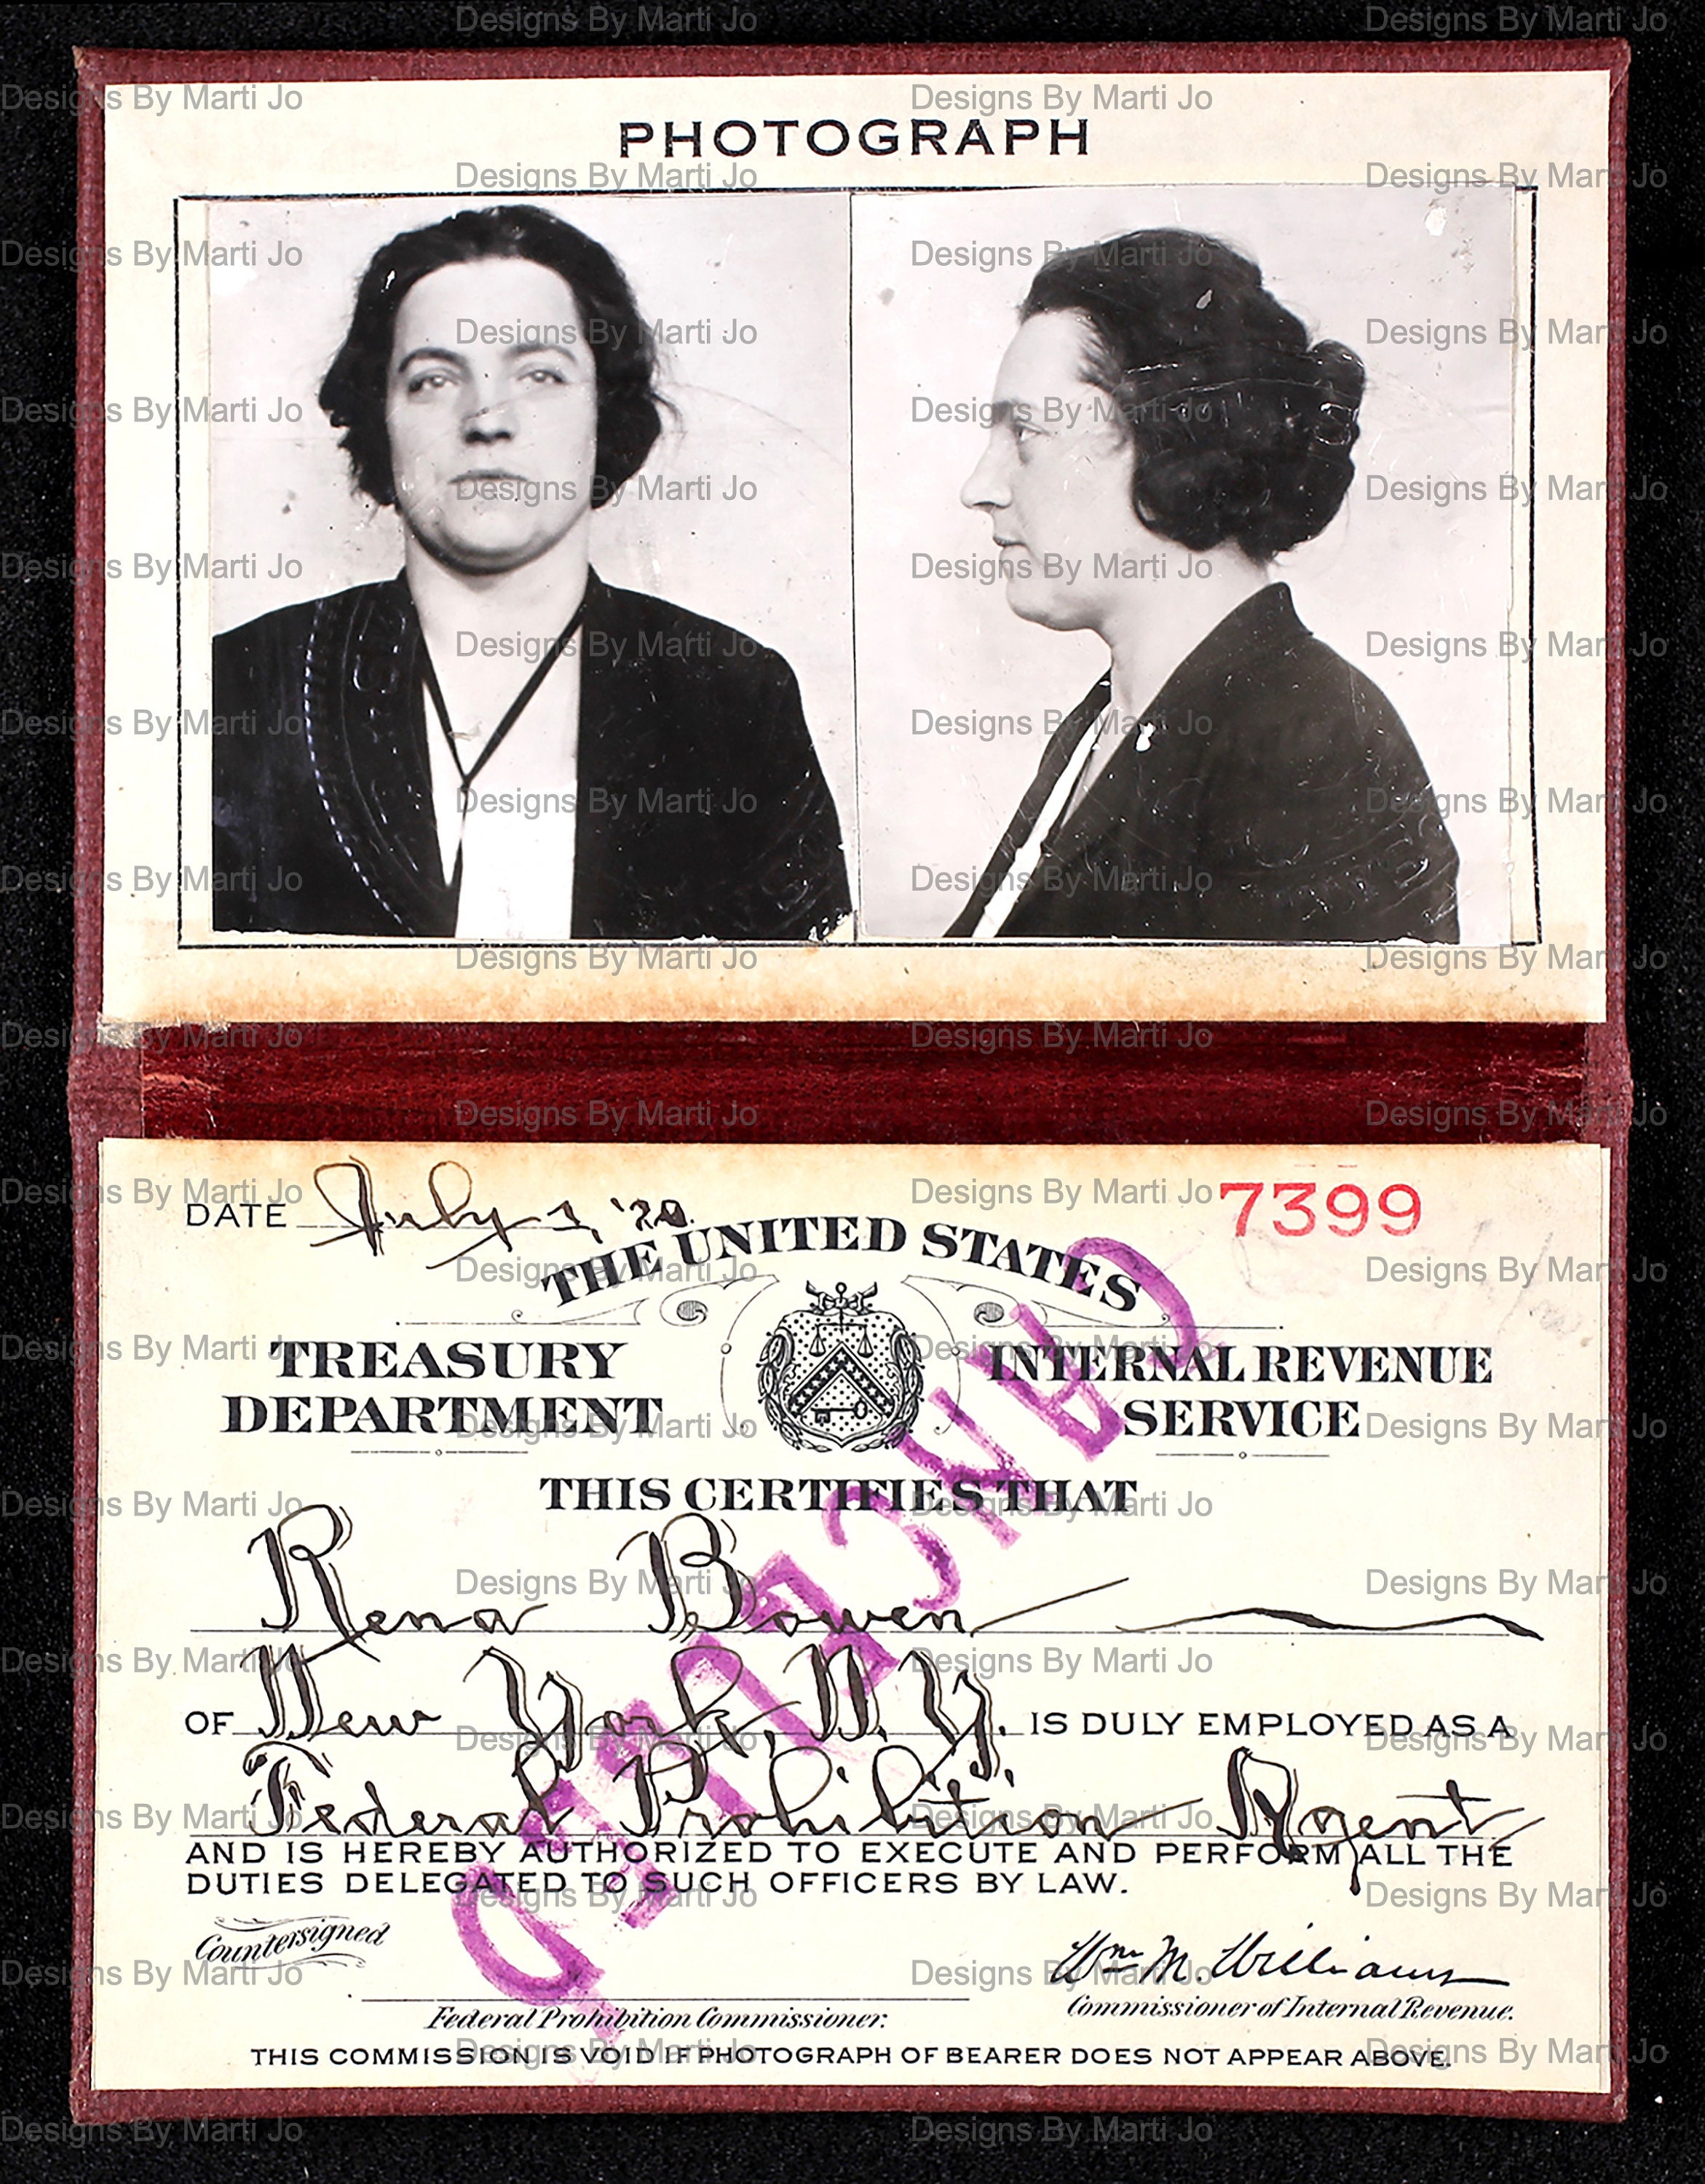 Designs By Marti Jo
PHOTOGRAPH
DATE July 1, '20.
7399
THE UNITED STATES
TREASURY DEPARTMENT
INTERNAL REVENUE SERVICE
THIS CERTIFIES THAT
Rena Bowen
OF New York, N.Y. IS DULY EMPLOYED AS A
Federal Prohibition Agent
AND IS HEREBY AUTHORIZED TO EXECUTE AND PERFORM ALL THE
DUTIES DELEGATED TO SUCH OFFICERS BY LAW.
CANCELLED
Countersigned
Wm. M. Williams
Federal Prohibition Commissioner.
Commissioner of Internal Revenue.
THIS COMMISSION IS VOID IF PHOTOGRAPH OF BEARER DOES NOT APPEAR ABOVE.